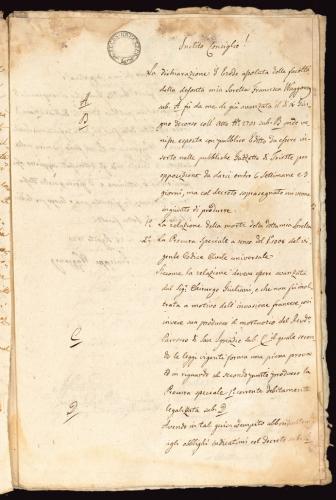 Inclito Consiglio!
La dichiarazione d'Erede assoluta della facoltà
della defonta mia Sorella Francesca
sub. A fu da me di già avanzata il di
A
gno decorso coll' Atto N.º 1721 sub. B onde ve-
B
nisse esposta con pubblico Editto da essere in-
serto nelle pubbliche Gazzette di Trieste per
opposizione da darsi entro 6 Settimane e 3
giorni, ma col decreto soprasegnato mi venne
ingiunto di produrre
1º La relazione della morte della Sorella
2º La Procura Speciale a senso del § 1008 del vi-
gente Codice Civile universale
Siccome la relazione doveva essere avanzata
dal Sigr Chirurgo Giuliani, e che non fù inol-
trata a motivo dell' invasione francese, così
invece sua produco il mortuorio del Revdo
Parroco di San Ignazio sub. C il quale secon-
C
do le leggi vigenti forma una piena prova
ed in riguardo al secondo punto produco la
Procura speciale debitamente
legalizzata sub. D
D
Avendo in tal guisa adempito
agli obblighi indicatimi col Decreto sub.